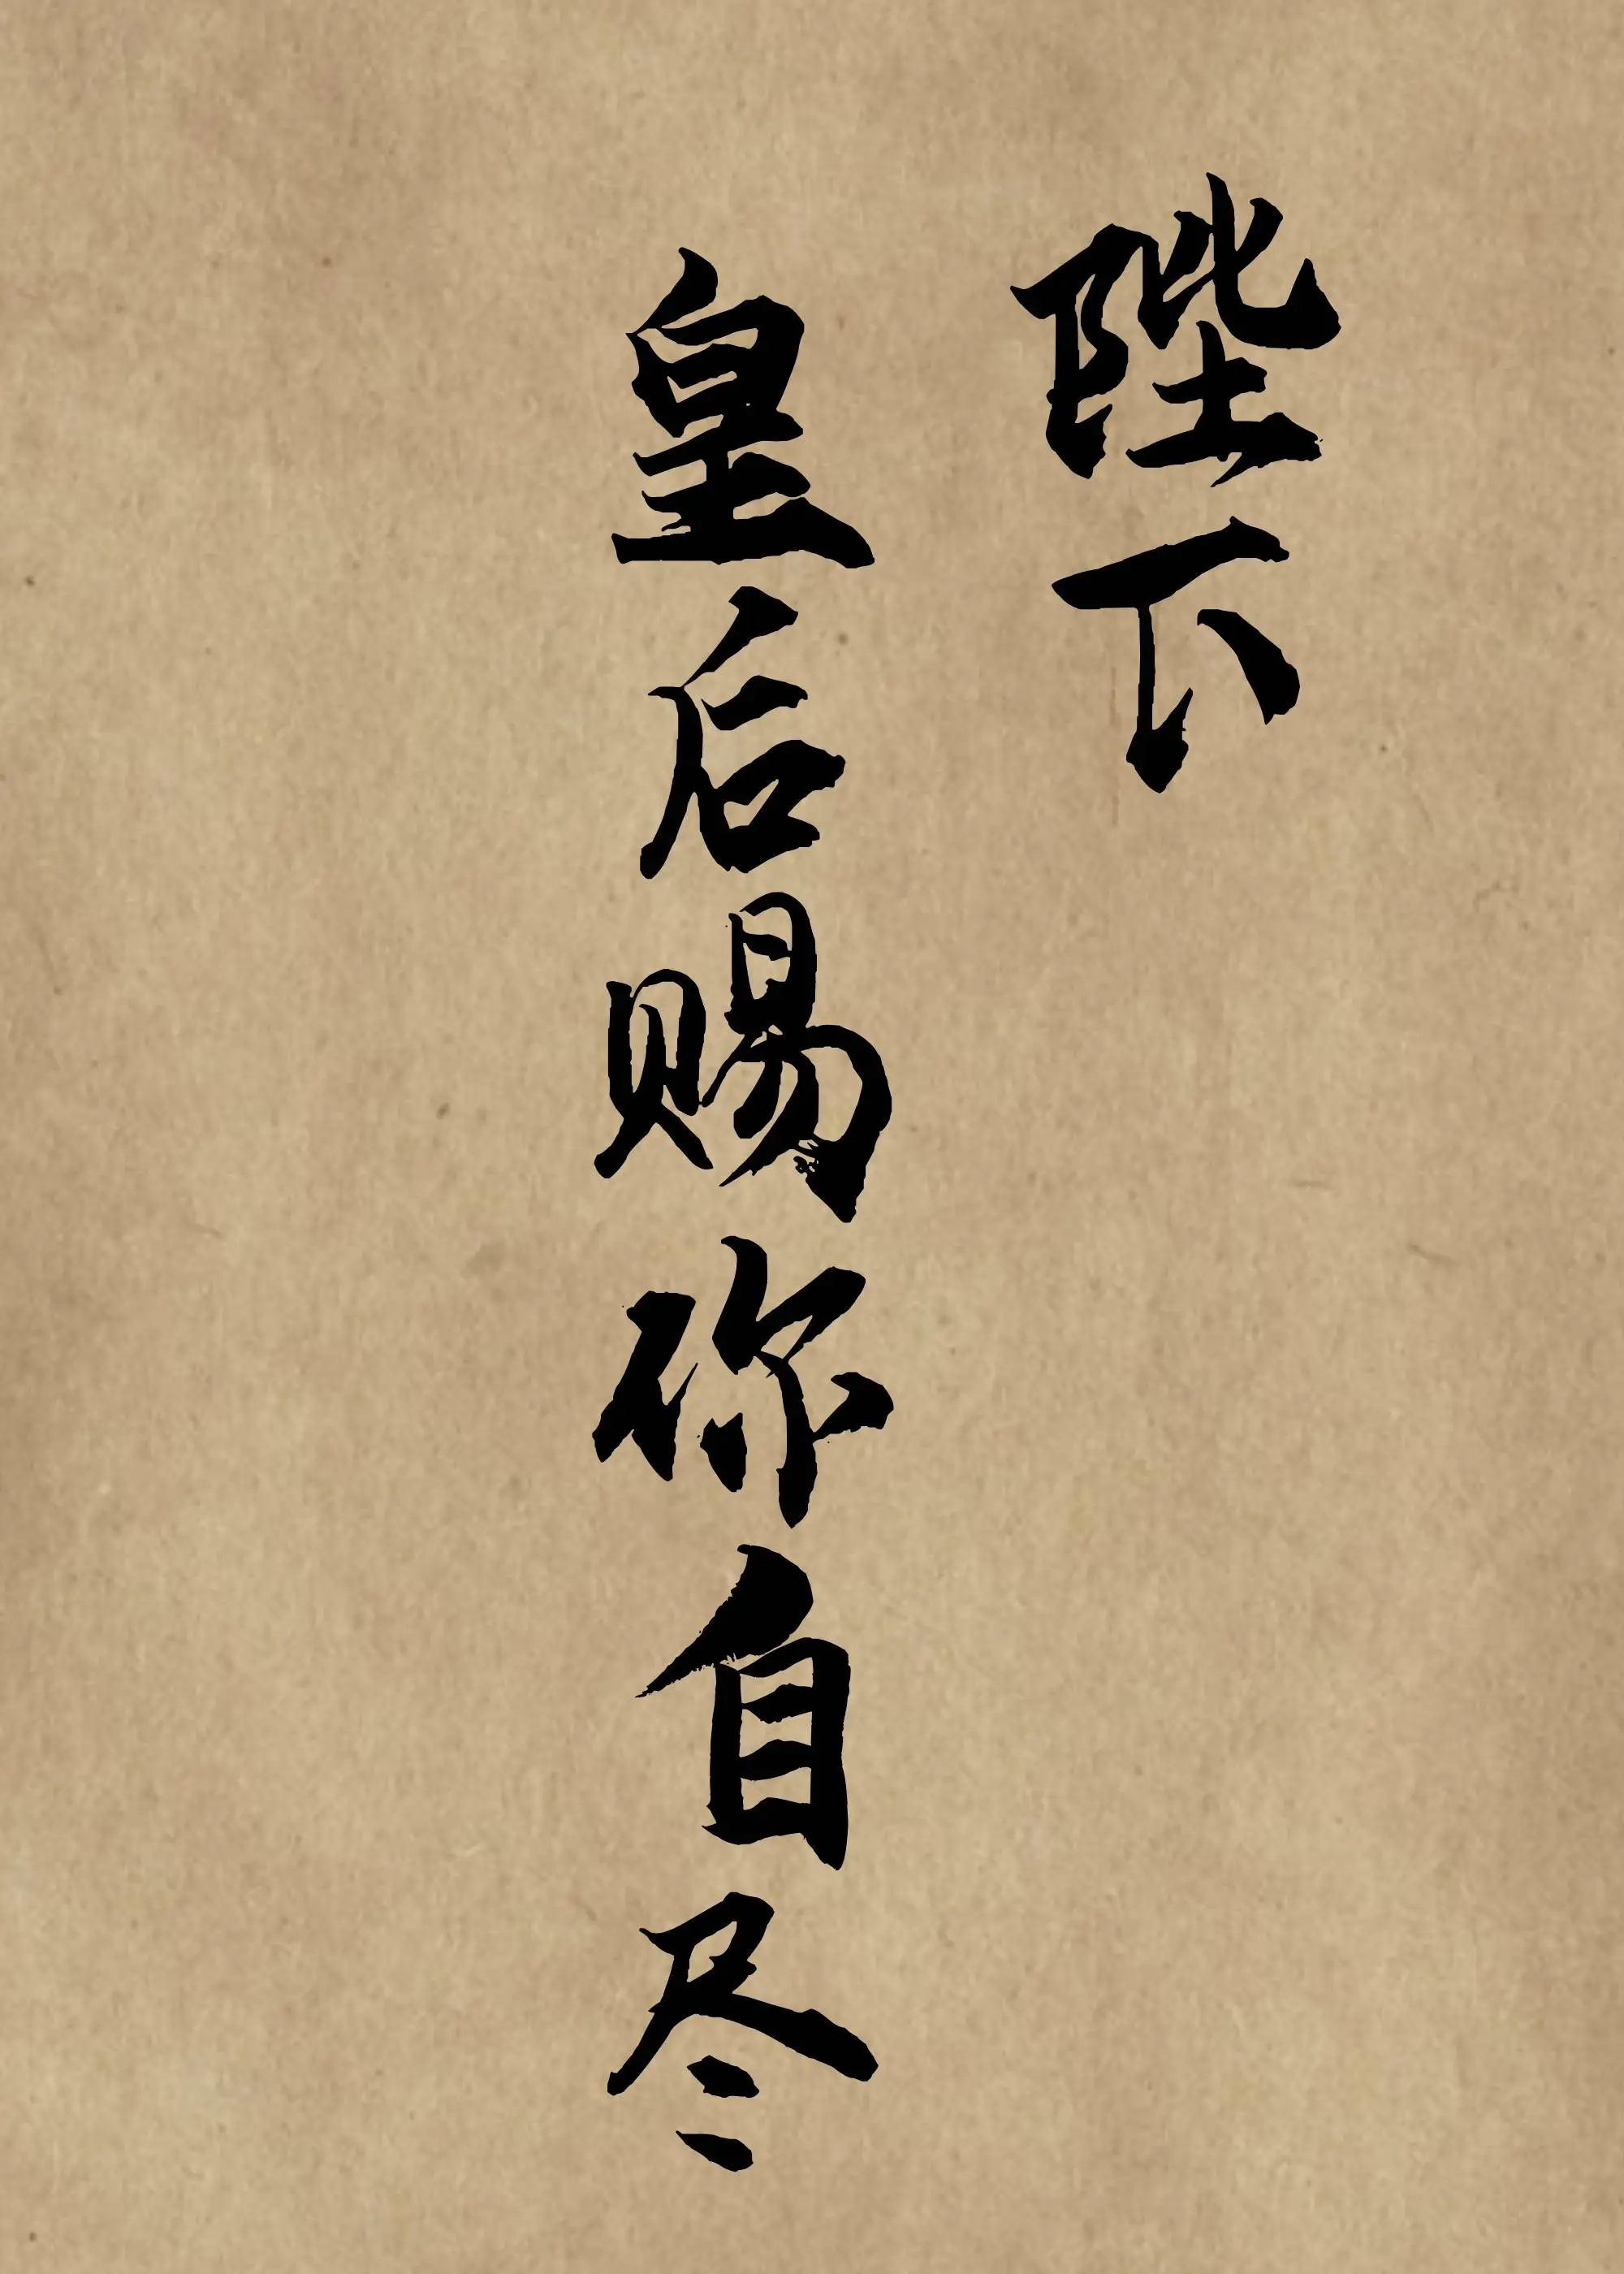 陛下
皇后赐你自尽